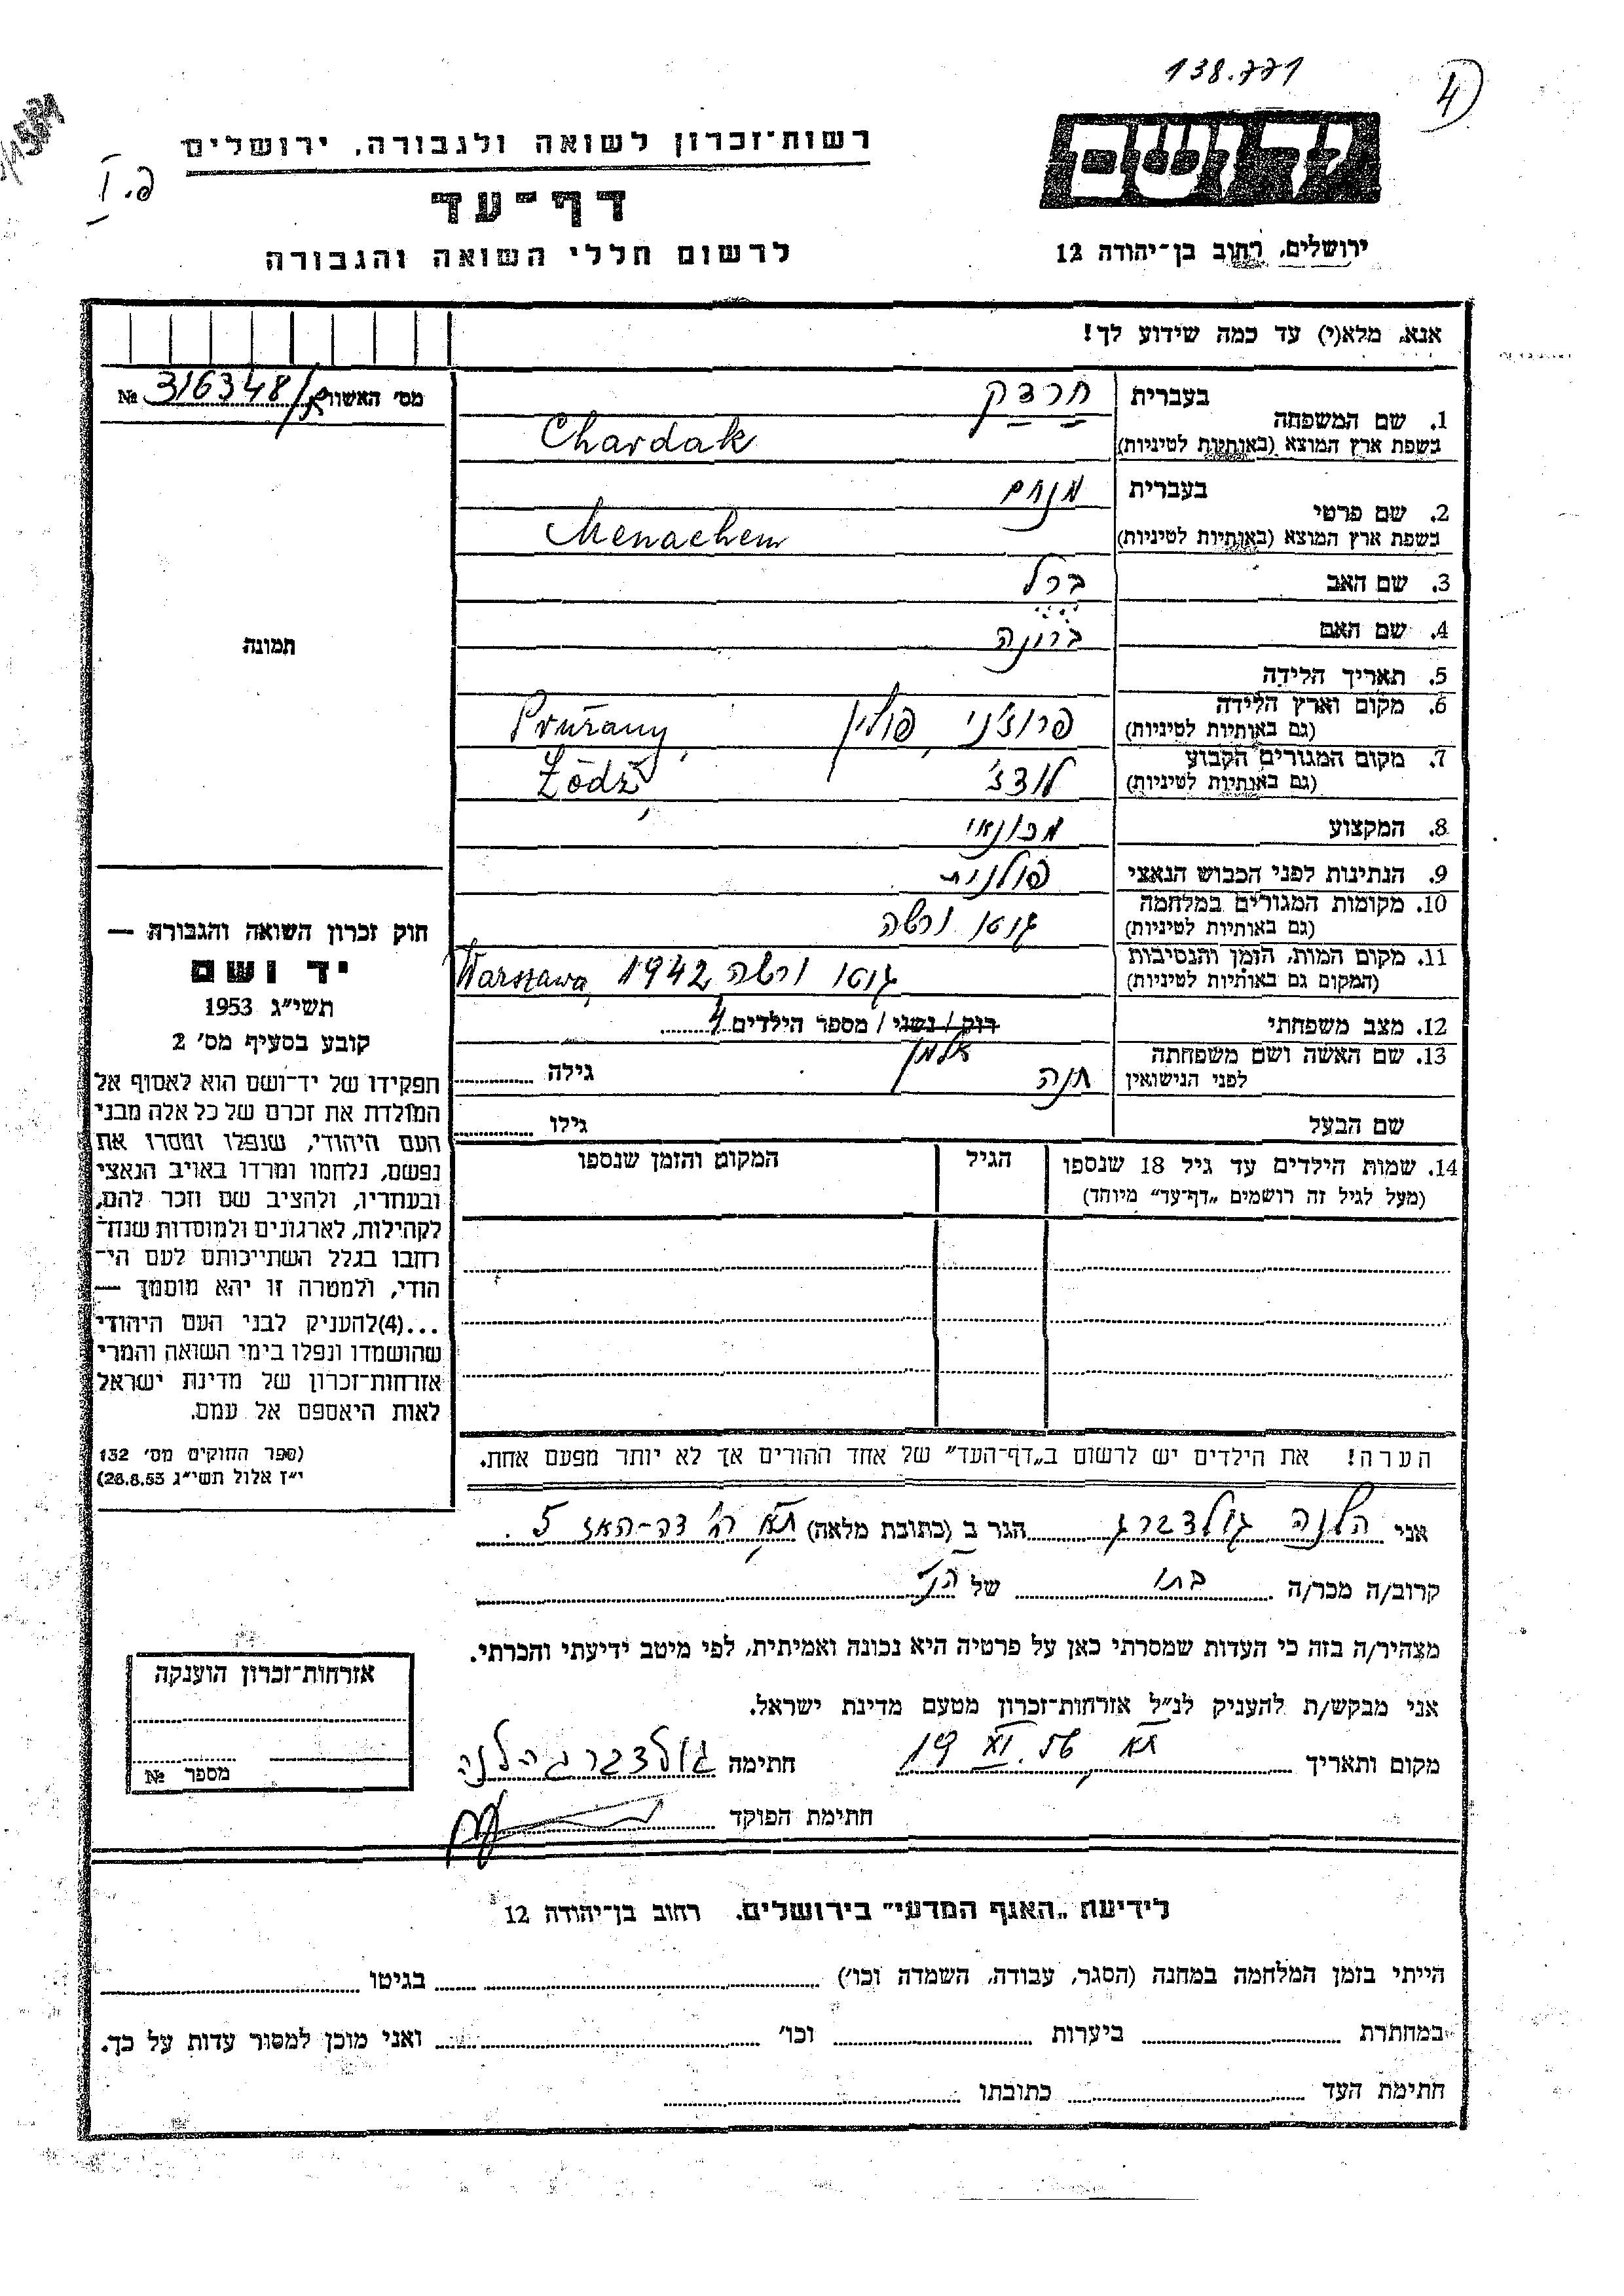 138.771
4
רשות־זכרון לשואה ולגבורה, ירושלים
יד ושם
דף־עד
פ. I
לרשום חללי השואה והגבורה
ירושלים, רחוב בן־יהודה 12
אנא, מלא(י) עד כמה שידוע לך!
מס׳ האשור № 316348/
1. שם המשפחה בעברית חרדק
בשפת ארץ המוצא (באותיות לטיניות) Chardak
2. שם פרטי בעברית מנחם
בשפת ארץ המוצא (באותיות לטיניות) Menachem
3. שם האב ברל
4. שם האם ברונה
תמונה
5. תאריך הלידה
6. מקום וארץ הלידה
(גם באותיות לטיניות) פרוז׳ני, פולין Pružany,
7. מקום המגורים הקבוע
(גם באותיות לטיניות) לודז׳ Łódź,
8. המקצוע מכונאי
9. הנתינות לפני הכבוש הנאצי פולנית
10. מקומות המגורים במלחמה
(גם באותיות לטיניות) גטו ורשה
11. מקום המות, הזמן והנסיבות
(המקום גם באותיות לטיניות) גטו ורשה 1942 Warszawa,
12. מצב משפחתי רוק / נשוי / מספר הילדים 4
אלמן
13. שם האשה ושם משפחתה
לפני הנישואין חנה גילה
שם הבעל גילו
14. שמות הילדים עד גיל 18 שנספו הגיל המקום והזמן שנספו
(מעל לגיל זה רושמים „דף־עד״ מיוחד)
חוק זכרון השואה והגבורה —
יד ושם
תשי״ג 1953
קובע בסעיף מס׳ 2
תפקידו של יד־ושם הוא לאסוף אל
המולדת את זכרם של כל אלה מבני
העם היהודי, שנפלו ומסרו את
נפשם, נלחמו ומרדו באויב הנאצי
ובעוזריו, ולהציב שם וזכר להם,
לקהילות, לארגונים ולמוסדות שנח־
רחבו בגלל השתייכותם לעם הי־
הודי, ולמטרה זו יהא מוסמך —
...(4)להעניק לבני העם היהודי
שהושמדו ונפלו בימי השואה והמרי
אזרחות־זכרון של מדינת ישראל
לאות היאספם אל עמם.
(ספר החוקים מס׳ 132
י״ז אלול תשי״ג 28.8.53)
הערה! את הילדים יש לרשום ב„דף־העד״ של אחד ההורים אך לא יותר מפעם אחת.
אני הלנה גולדברג הגר ב (כתובת מלאה) ת״א רח׳ דה-האז 5.
קרוב/ה מכר/ה בתו של הנ״ל
מצהיר/ה בזה כי העדות שמסרתי כאן על פרטיה היא נכונה ואמיתית, לפי מיטב ידיעתי והכרתי.
אני מבקש/ת להעניק לנ״ל אזרחות־זכרון מטעם מדינת ישראל.
מקום ותאריך ת״א 19 XI. 56 חתימה גולדברג הלנה
חתימת הפוקד
אזרחות־זכרון הוענקה
מספר №
לידיעת „האגף המדעי״ בירושלים. רחוב בן־יהודה 12
הייתי בזמן המלחמה במחנה (הסגר, עבודה, השמדה וכו׳) בגיטו
במחתרת ביערות וכו׳ ואני מוכן למסור עדות על כך.
חתימת העד כתובתו